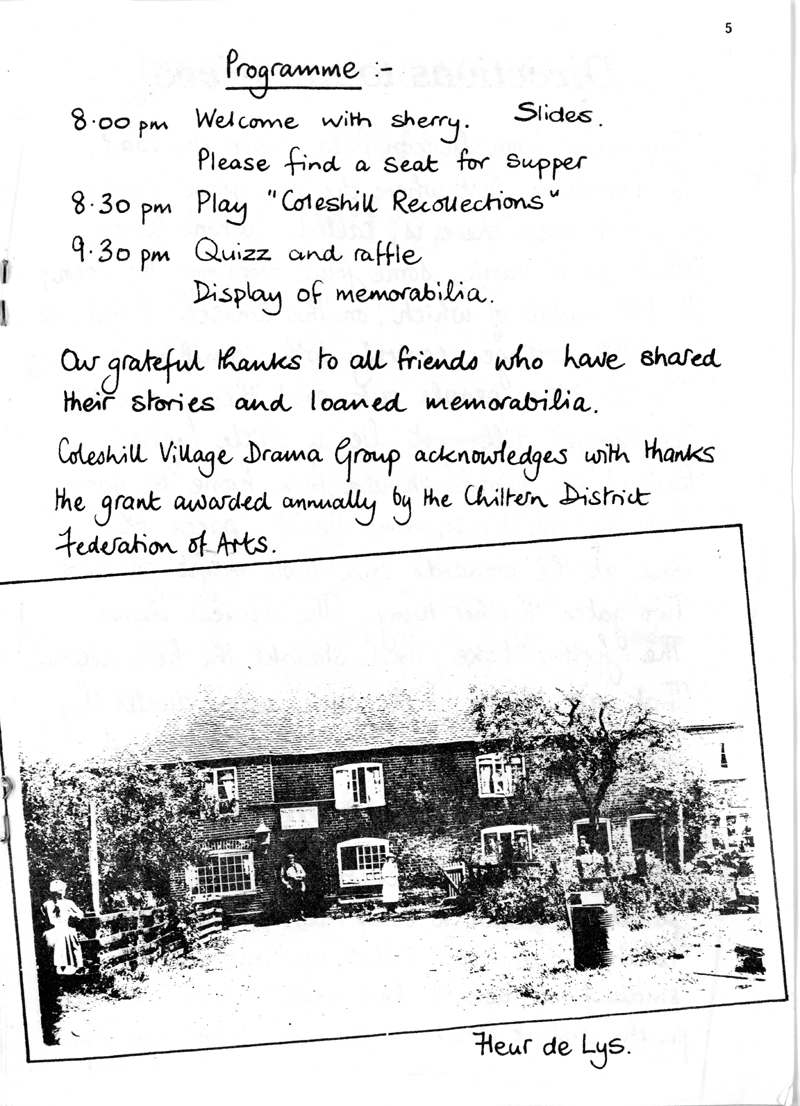 5
Programme :-
8.00 pm Welcome with sherry. Slides.
Please find a seat for supper
8.30 pm Play "Coleshill Recollections"
9.30 pm Quizz and raffle
Display of memorabilia.
Our grateful thanks to all friends who have shared
their stories and loaned memorabilia.
Coleshill Village Drama Group acknowledges with thanks
the grant awarded annually by the Chiltern District
Federation of Arts.
Fleur de Lys.